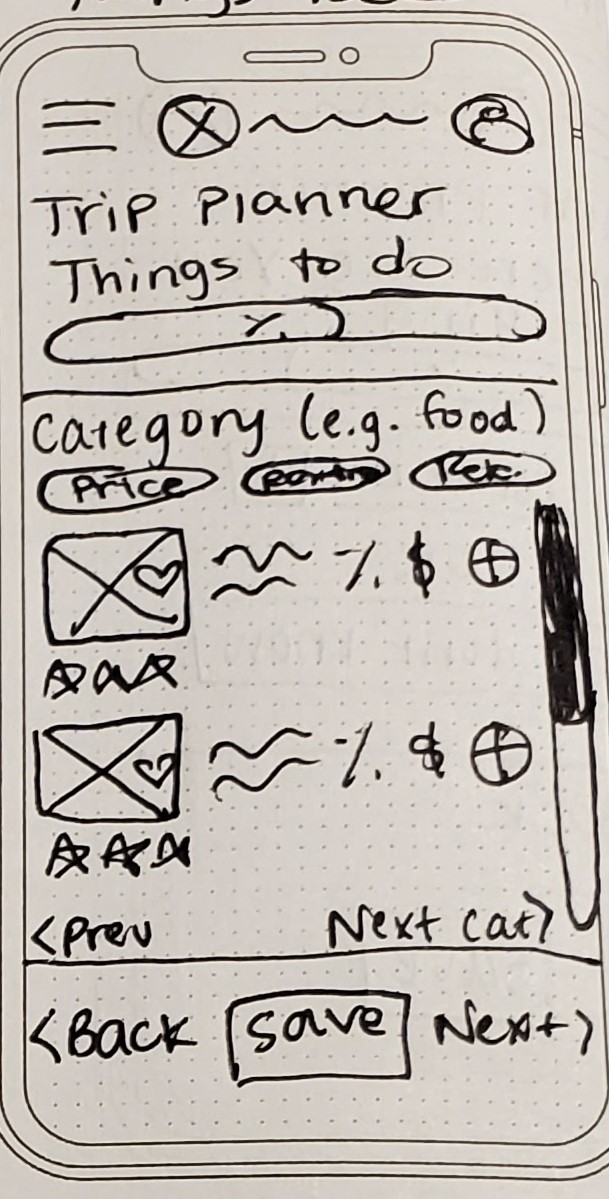 Trip Planner
Things to do
%
Category (e.g. food)
Price Rek.
% $
% $
<Prev Next cat>
<Back Save Next>